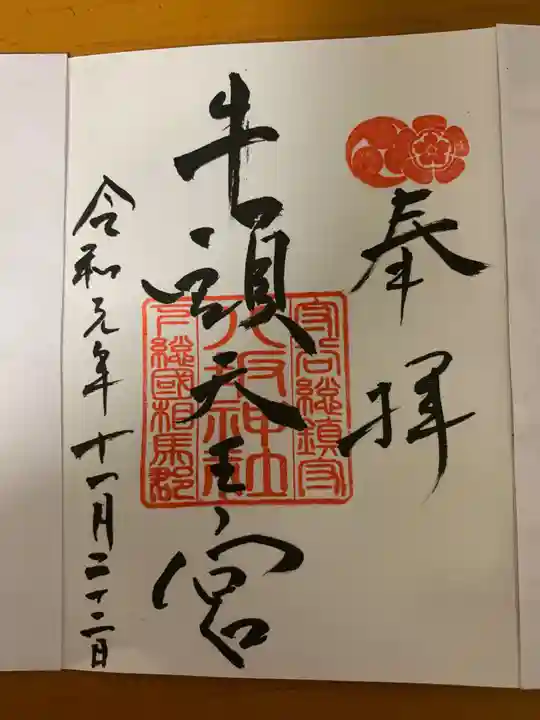 奉拝
牛頭天王宮
守谷総鎮守
八坂神社
下総國相馬郡
令和元年十一月二十二日